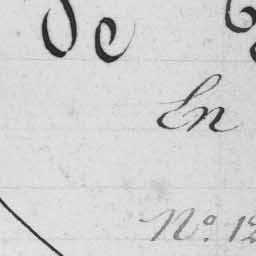 de
En
Nº 12